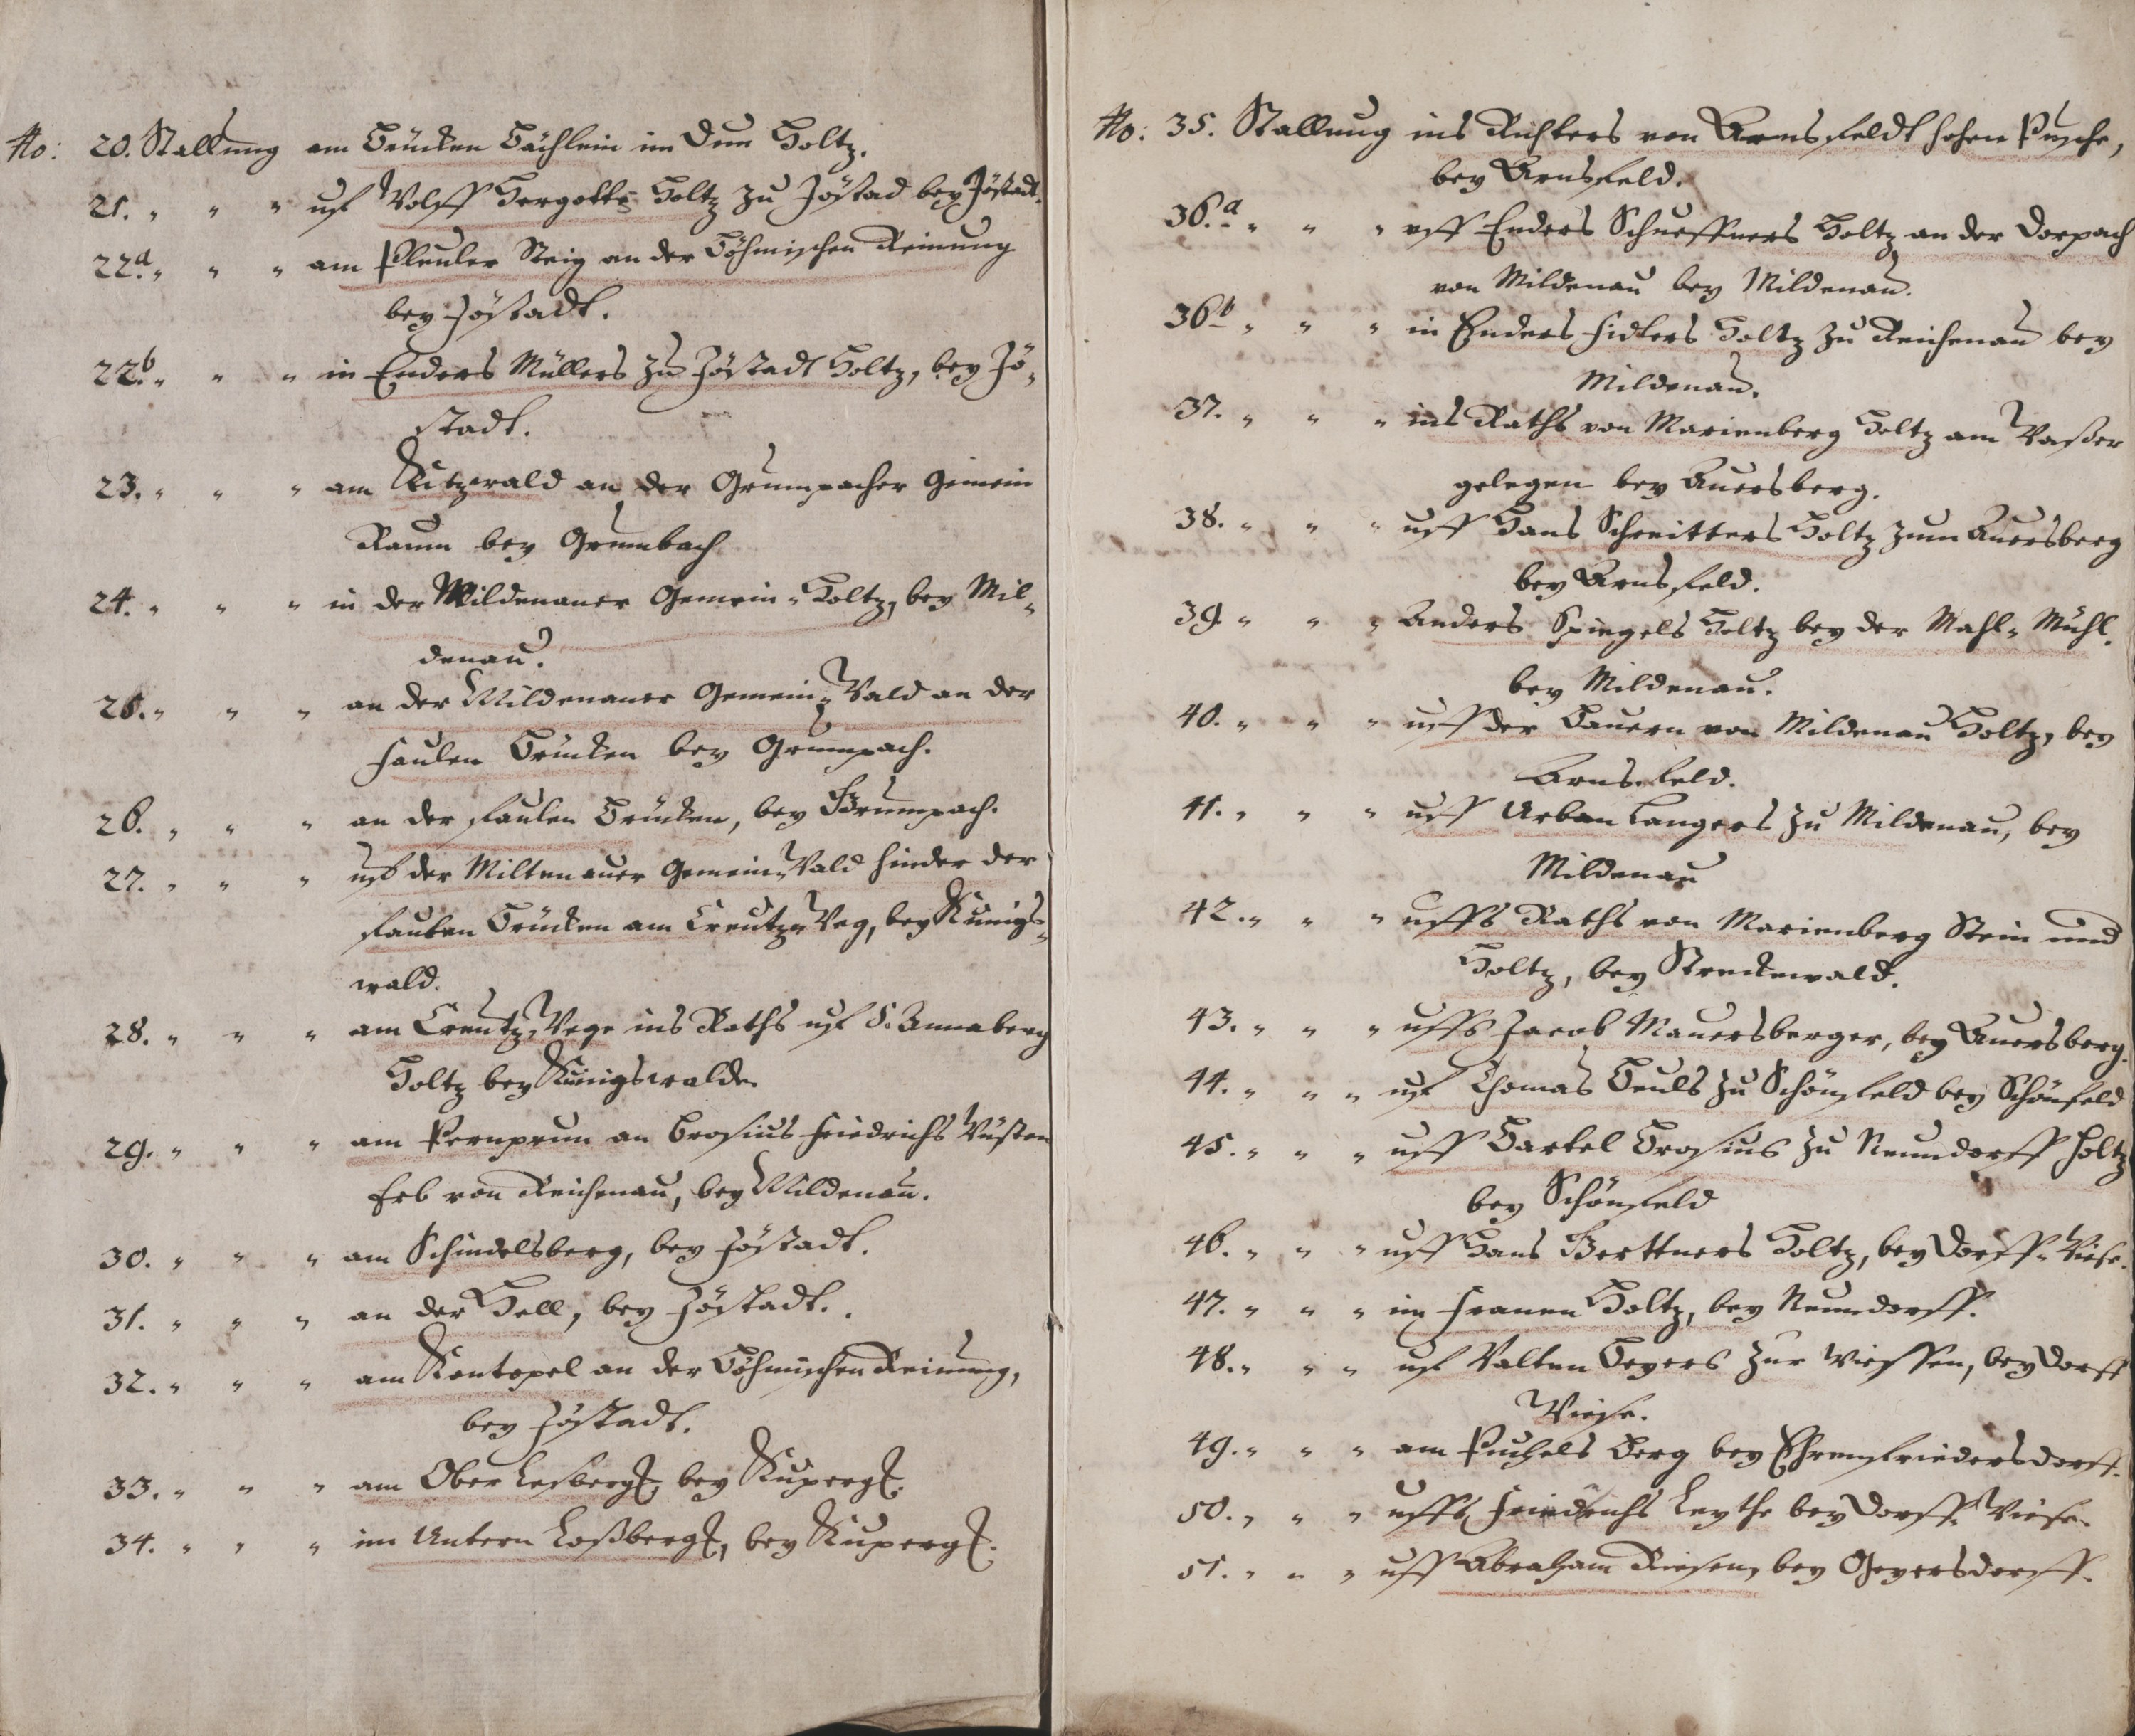 No: 20. Stallung am Brücken Bächlein im Dun Holtz.
21. " " " uf Wolff Hergotts Holtz zu Jöstad bey Jöstadt.
22.a " " " am Pleuler Steig an der Böhmischen Reinung
bey Jöstadt.
22.b " " " in Enders Müllers zu Jöstadt Holtz, bey Jö-
stadt.
23. " " " am Kitzwald an der Grumpacher Gemein
Raum bey Grumbach
24. " " " in der Mildenauer Gemein-Holtz, bey Mil-
denau.
25. " " " an der Mildenauer Gemein-Wald an der
faulen Brücken bey Grumpach.
26. " " " an der faulen Brücken, bey Grumpach.
27. " " " uf der Miltenauer Gemein-Wald hinder der
faulen Brücken am Creutz-Weg, bey Kunigs-
wald.
28. " " " am Creutz-Wege ins Raths uf S. Annaberg
Holtz bey Künigswalde.
29. " " " am Pernprun an Brosius Friedrichs Wüsten
Erb von Reichenau, bey Mildenau.
30. " " " am Schindelsberg, bey Jöstadt.
31. " " " an der Hell, bey Jöstadt.
32. " " " am Kontopel an der Böhmischen Reinung,
bey Jöstadt.
33. " " " am Ober Lesberg, bey Kuperg.
34. " " " im Untern Loßberg, bey Kuperg.
No: 35. Stallung ins Richters von Arnsfeldt hohen Pusche,
bey Arnsfeld.
36.a " " " uff Enders Schueffners Holtz an der Dorpach
von Mildenau bey Mildenau.
36b " " " in Enders Fidlers Holtz zu Reichenau bey
Mildenau.
37. " " " ins Raths von Marienberg Holtz am Waßer
gelegen bey Auersberg.
38. " " " uff Hans Schneitters Holtz zum Auersberg
bey Arnsfeld.
39 " " " Anders Spiegels Holtz bey der Mahl-Mühl.
bey Mildenau.
40. " " " uff der Bauern von Mildenau Holtz, bey
Arnsfeld.
41. " " " uff Urban Langers zu Mildenau, bey
Mildenau
42. " " " uffs Raths von Marienberg Stein und
Holtz, bey Streckewald.
43. " " " uffs Jacob Mauersberger, bey Auersberg.
44. " " " uf Thomas Beuls zu Schönfeld bey Schönfeld
45. " " " uff Bartel Brosius zu Neundorff Holtz
bey Schönfeld
46. " " " uff Hans Gerttners Holtz, bey Dorff-Wiese.
47. " " " im Frauen Holtz, bey Neundorff.
48. " " " uf Valten Beyers zur Wiessen, bey Dorff
Wiese.
49. " " " am Puchels Berg bey Ehrenfriedersdorff.
50. " " " uffs Friedrichs Leythe bey Dorff-Wiese.
51. " " " uff Abraham Riesen, bey Geyersdorff.